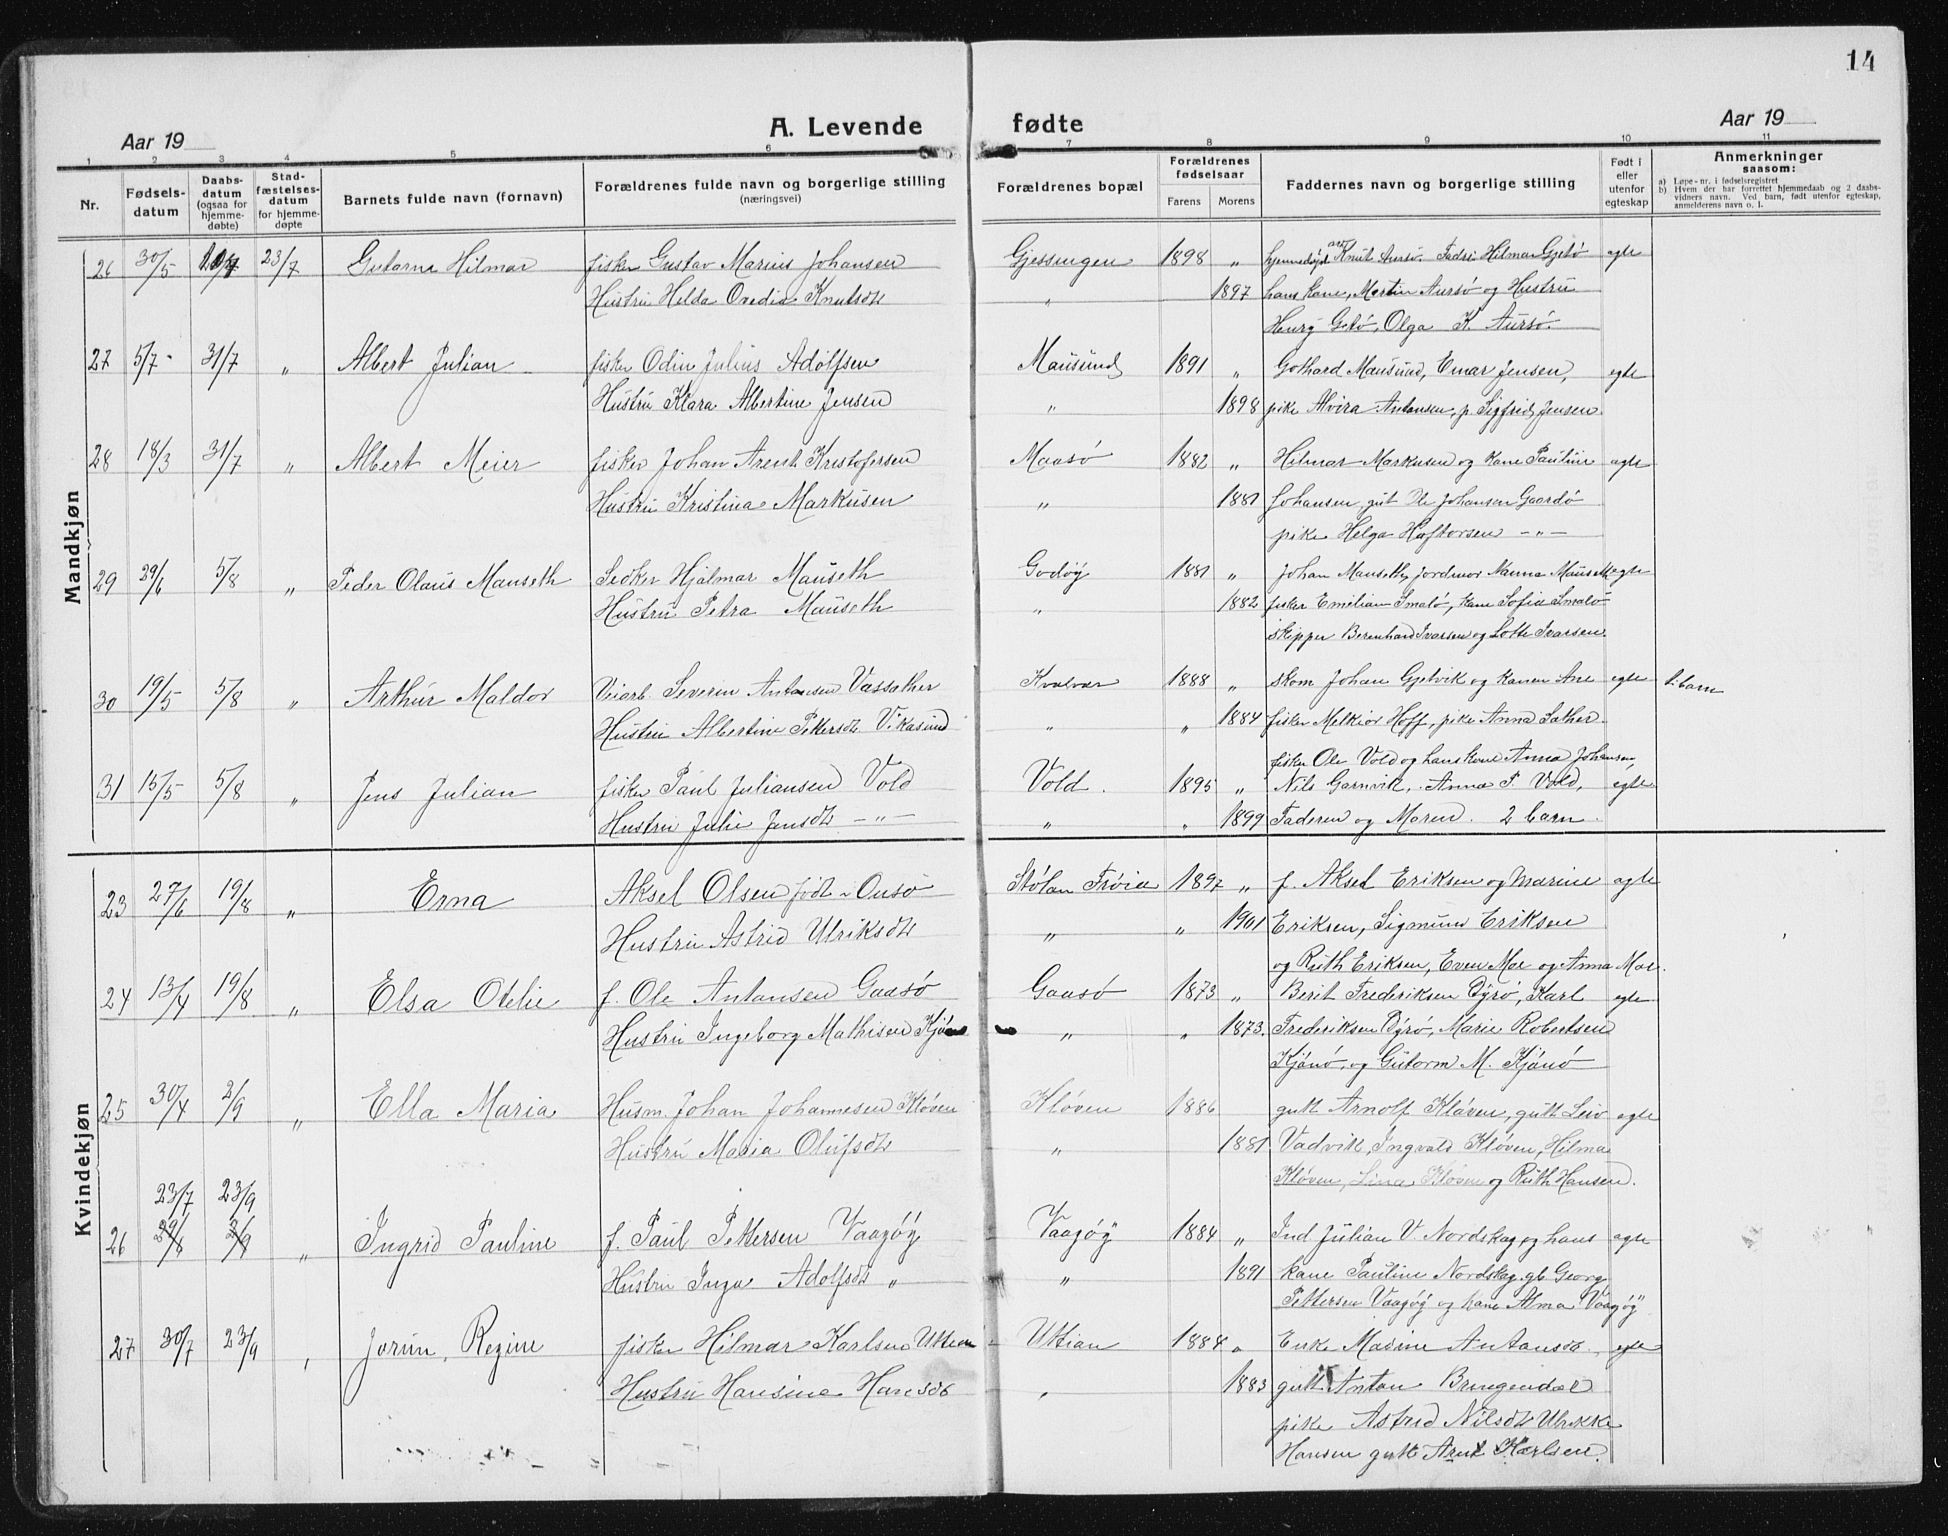 14
Aar 19
A. Levende fødte
Aar 19
1 2 3 4 5 6 7 8 9 10 11
Nr.
Fødsels-
datum
Daabs-
datum
(ogsaa for
hjemme-
døbte)
Stad-
fæstelses-
datum
for hjemme-
døpte
Barnets fulde navn (fornavn)
Forældrenes fulde navn og borgerlige stilling
(næringsvei)
Forældrenes bopæl
Forældrenes
fødselsaar
Farens Morens
Faddernes navn og borgerlige stilling
Født i
eller
utenfor
egteskap
Anmerkninger
saasom:
a) Løpe-nr. i fødselsregistret
b) Hvem der har forrettet hjemmedaab og 2 daabs-
vidners navn. Ved barn, født utenfor egteskap,
anmelderens navn o. l.
Mandkjøn
26 30/5 23/7 Gutorm Hilmar fisker Gustav Marius Johansen Gjessingen 1898 " hjemmedøpt av Knut Aursø. Fadri: Hilmar Gjetø egte
Hustru Helda Ovedie Knutsdt " 1897 hans kone, Martin Aursø og Hustru
Henry Getø, Olga K. Aursø.
27 5/7 31/7 " Albert Julian fisker Odin Julius Adolfsen Mausund 1891 " Gothard Mausund, Einar Jensen, egte
Hustru Klara Albertine Jensen " 1898 pike Alvira Antonsen, p. Sigfrid Jensen.
28 18/3 31/7 " Albert Meier fisker Johan Arent Kristofersen Maasø 1882 " Hilmar Markusen og kone Pauline egte
Hustru Kristina Markusen " 1881 Johansen, gut Ole Johansen Gaardø
pike Helga Haftorsen - " -
29 29/6 5/8 " Peder Olaus Mauseth Hjalmar Mauseth Godøy 1881 " Johan Mauseth, Jordmor Nanna Mauseth egte
Hustru Petra Mauseth " 1882 fisker Emilian Smalø, kone Sofie Smalø
skipper Berenhard Ivarsen og Lotte Ivarsen.
30 19/5 5/8 " Arthur Maldor Veiarb. Severin Antonsen Vassæther Kvalvær 1888 " skom Johan Gjetvik og konen Ane egte barn
Hustru Albertine Pettersdt Vikasund " " 1884 fisker Melkior Hoff, pike Anna Sæther.
fisker Ole Vold og hans kone Anna Johansen,
31 15/5 5/8 " Jens Julian fisker Paul Juliansen Vold Vold. 1895 " Nils Garnvik, Anna P. Vold, egte
Hustru Julie Jensdt - " - " " 1899 Faderen og Moren. 2 barn.
Kvindekjøn
23 27/6 19/8 " Erna Aksel Olsen født i Ousø Stølan Frøia 1897 " f. Aksel Eriksen og Marine egte
Hustru Astrid Ulriksdt " " 1901 Eriksen, Sigmund Eriksen
og Ruth Eriksen, Even Moe og Anna Moe.
24 13/4 19/8 " Elsa Otelie f. Ole Antonsen Gaasø Gaasø 1873 " Berit Frederiksen Dyrø, Karl egte
Hustru Ingeborg Mathisen " " 1873. Frederiksen Dyrø, Marie Robertsen
Kjønø, og Gutorm M. Kjønø
25 30/4 2/9 " Ella Maria Husm. Johan Johannesen Kløven Kløven 1886 gutt Arnolf Kløven, gutt Leiv egte
Hustru Maria Olufsdt " 1881. Vadvik, Ingvald Kløven, Hilma
Kløven, Lina Kløven og Ruth Hansen.
23/7 23/9
26 29/8 2/9 " Ingrid Pauline f. Paul Pettersen Vaagøy Vaagøy 1884 " Ind Julian V. Nordskag og hans egte
Hustru Inga Adolfsdt " " 1891 kone Pauline Nordskag. gb. Georg
Pettersen Vaagøy og kone Alma Vaagøy
27 30/7 23/9 Jorun, Regine fisker Hilmar Karlsen Uttian Uttian 1884 " Enke Madine Antonsdt. egte
Hustru Hansine Hansdt " 1883 gutt Anton Bringendal
pike Astrid Nilsdt Ulrikke
Hansen gutt Arnt Karlsen.